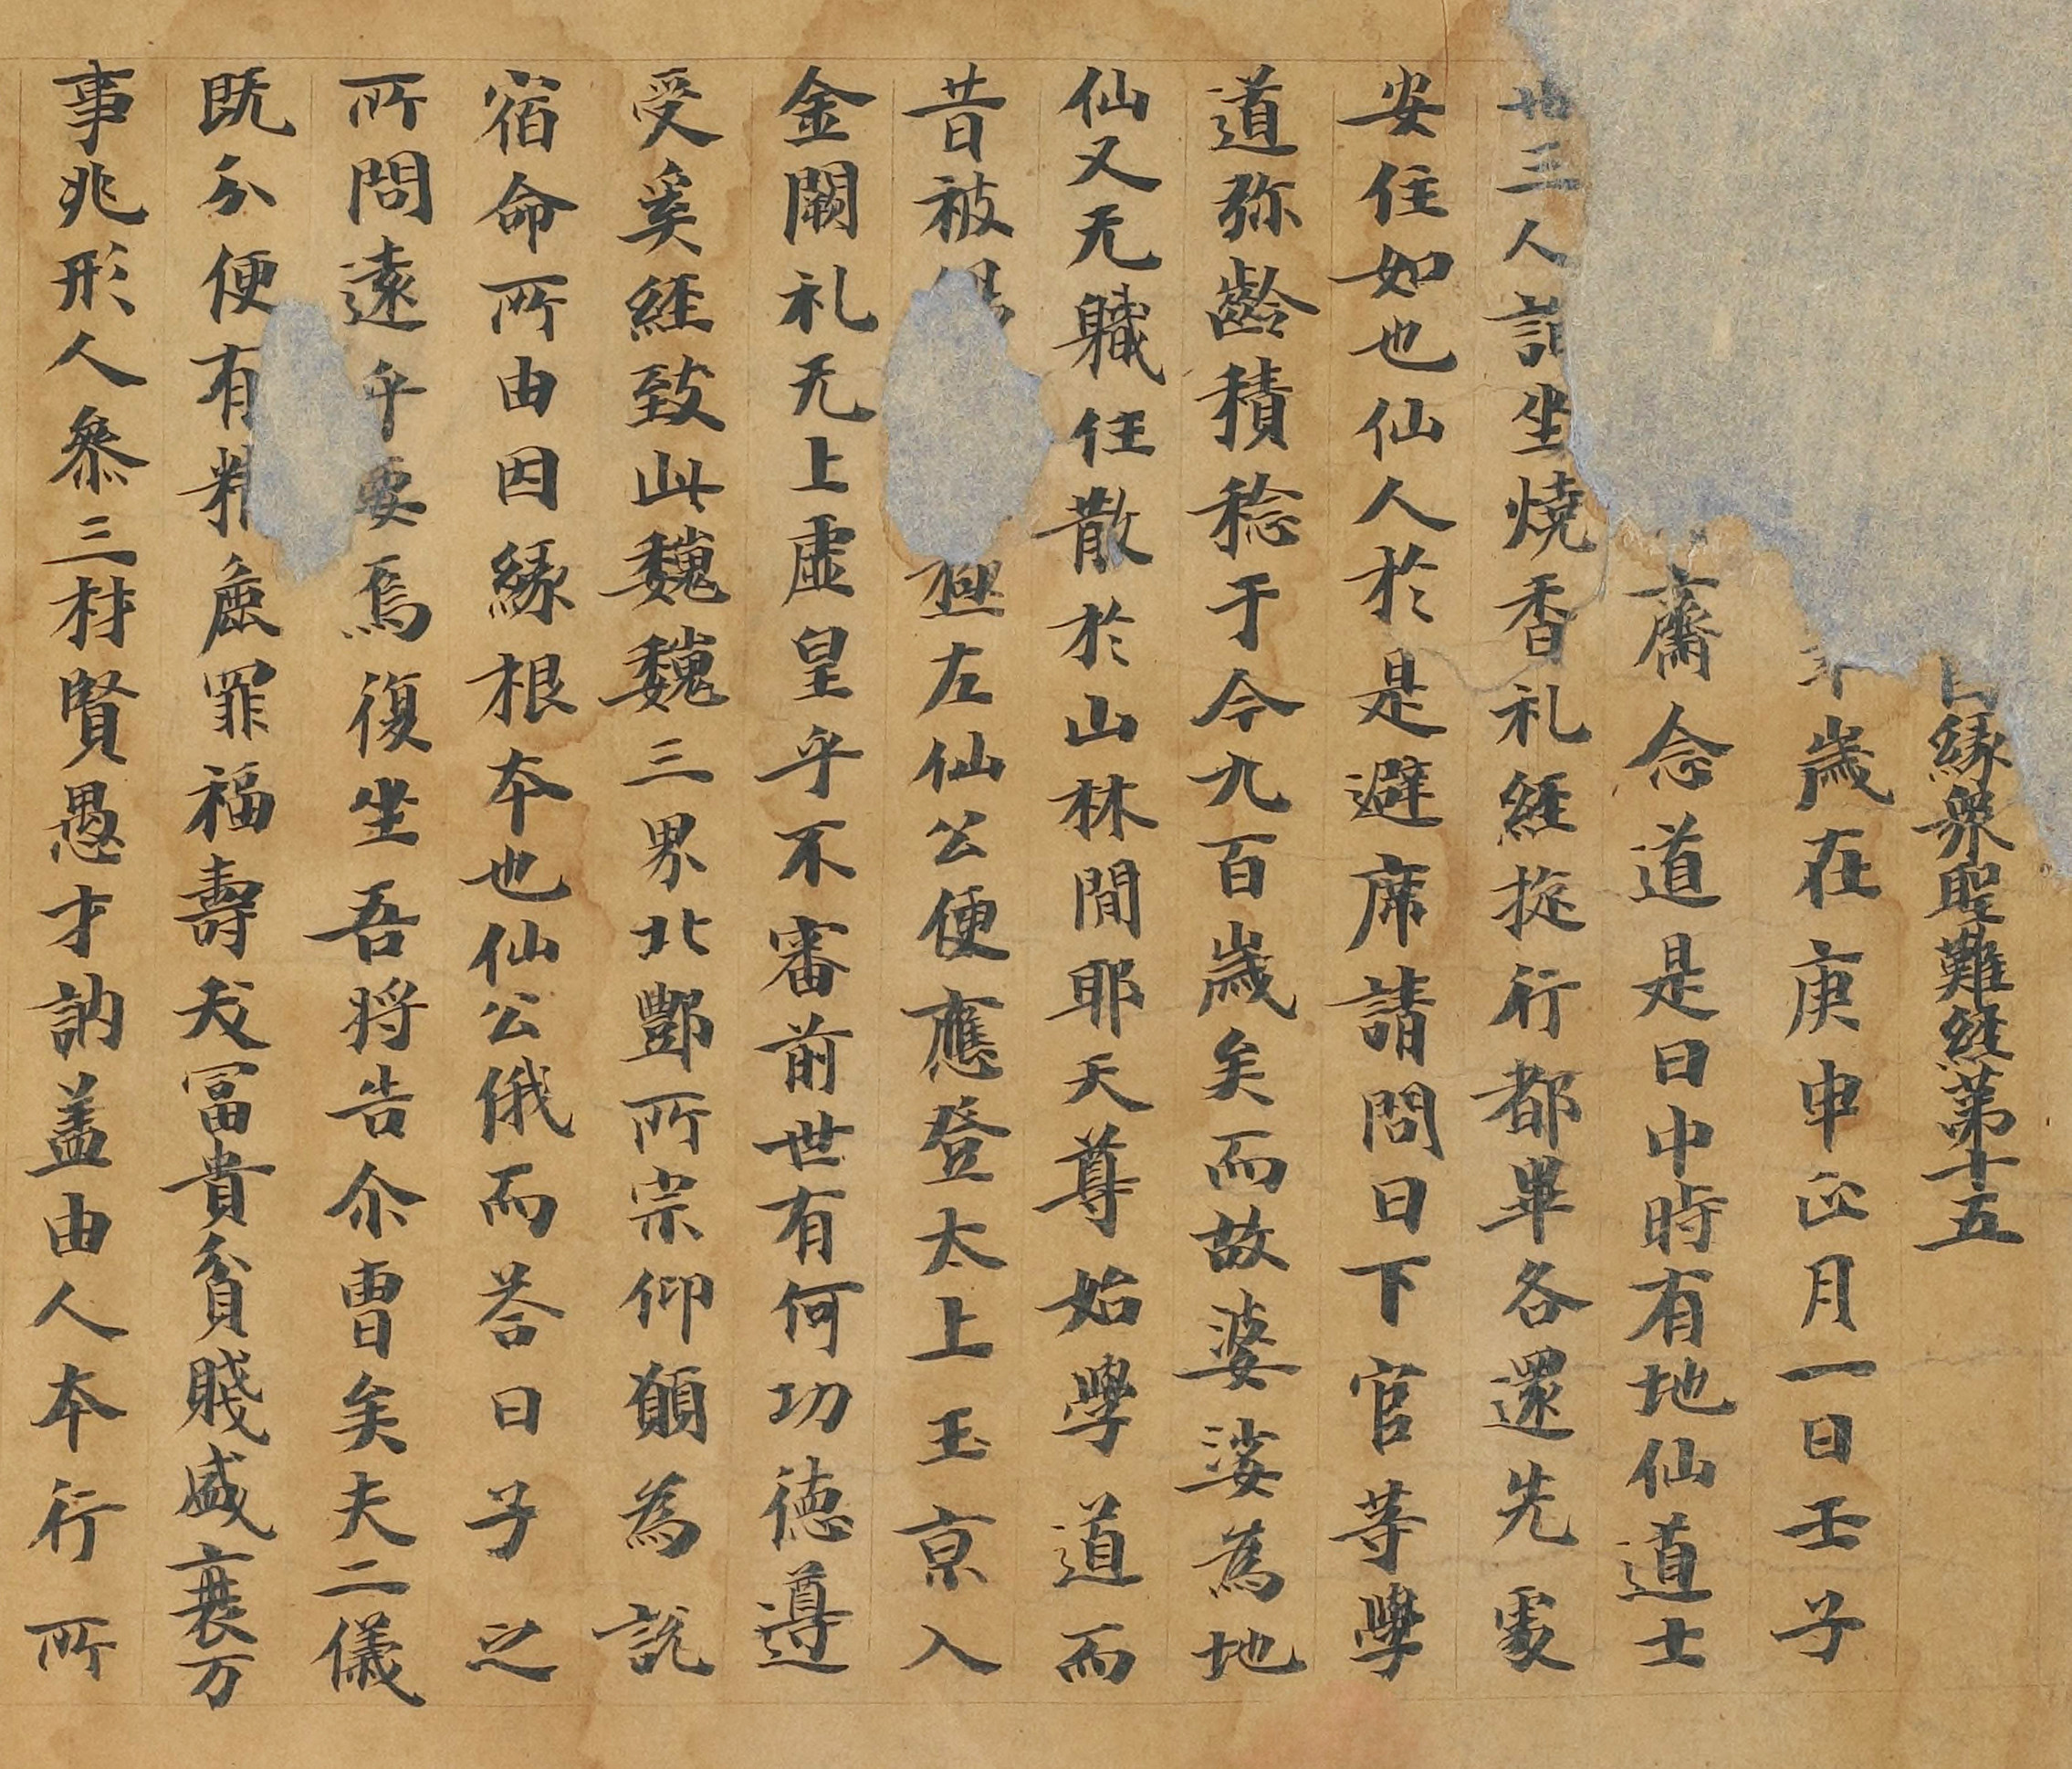 緣衆聖難經第十五
歲在庚申正月一日壬子
齋念道是日中時有地仙道士
三人詣坐燒香礼經旋行都畢各還先處
安住如也仙人於是避席請問曰下官等學
道弥齡積稔于今九百歲矣而故婆娑為地
仙又无軄住散於山林間耶天尊始學道而
昔被左仙公便應登太上玉京入
金闕礼无上虛皇乎不審前世有何功德遵
受奚經致此巍巍三界北酆所宗仰願為說
宿命所由因緣根本也仙公俄而荅曰子之
所問遠乎要焉復坐吾將告尒曹矣夫二儀
既分便有麁罪福壽夭冨貴貧賤盛衰万
事兆形人叅三材賢愚才訥盖由人本行所